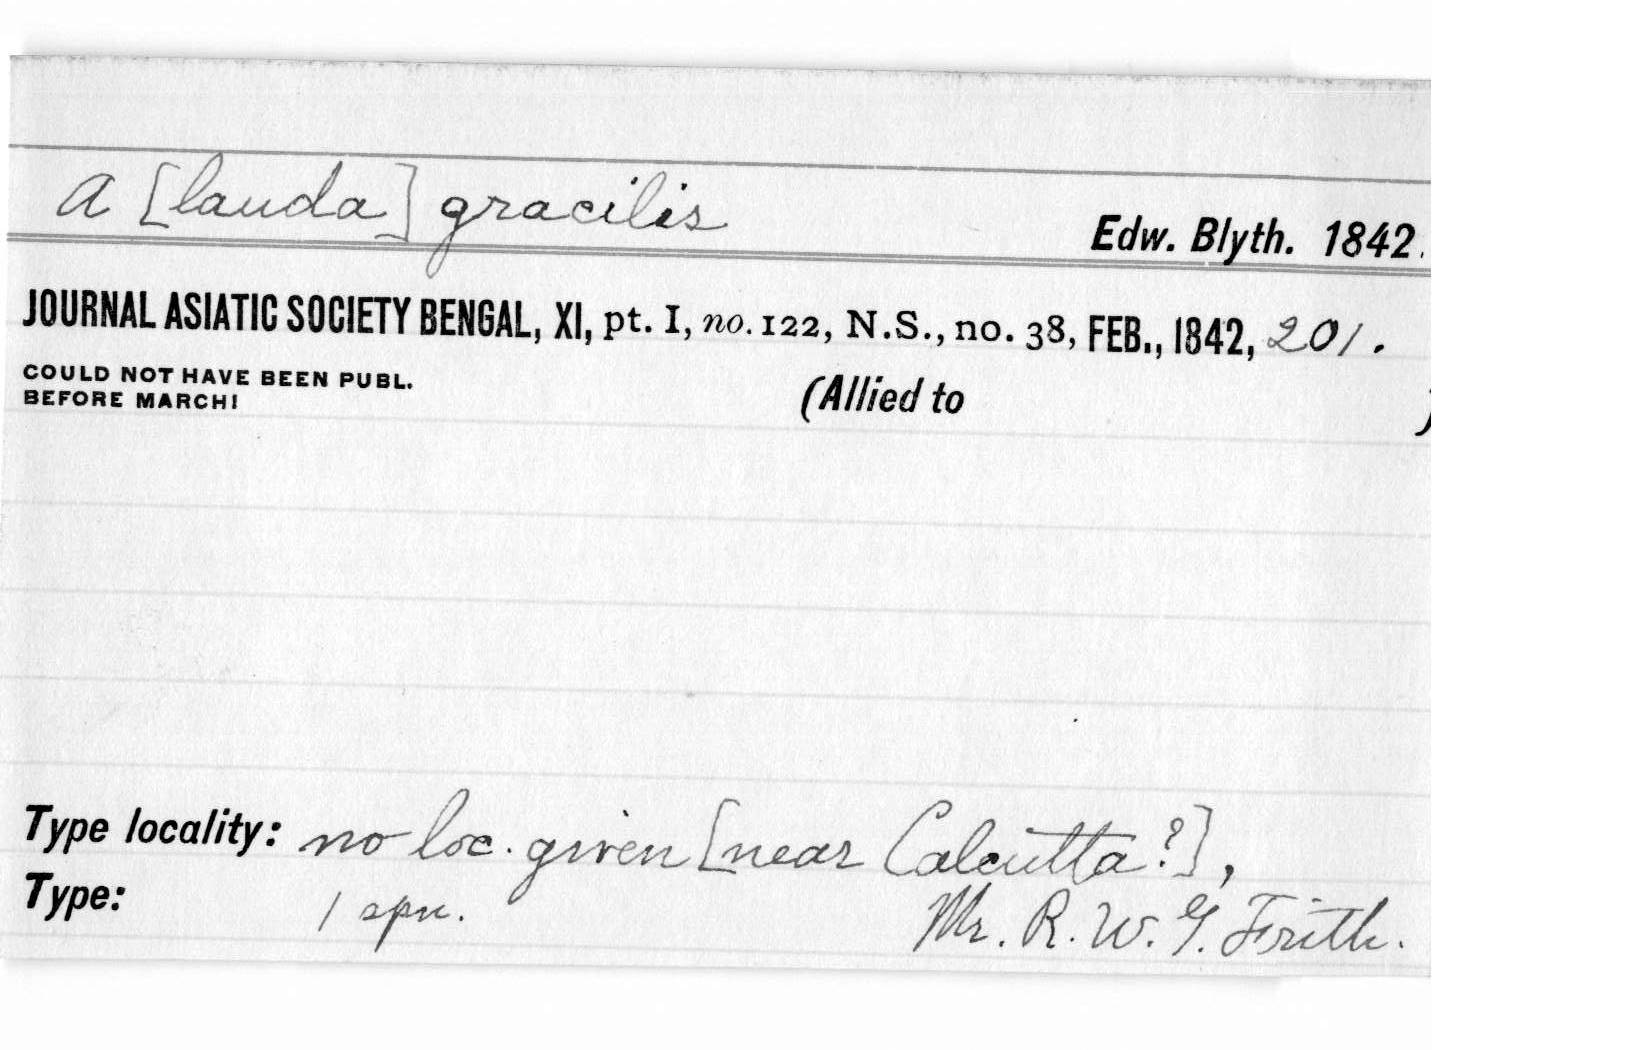 A [lauda] gracilis
Edw. Blyth. 1842.
JOURNAL ASIATIC SOCIETY BENGAL, XI, pt. I, no. 122, N.S., no. 38, FEB., 1842, 201.
COULD NOT HAVE BEEN PUBL.
BEFORE MARCH!
(Allied to )
Type locality: no loc. given [near Calcutta?],
Type: 1 spn. Mr. R. W. G. Frith.